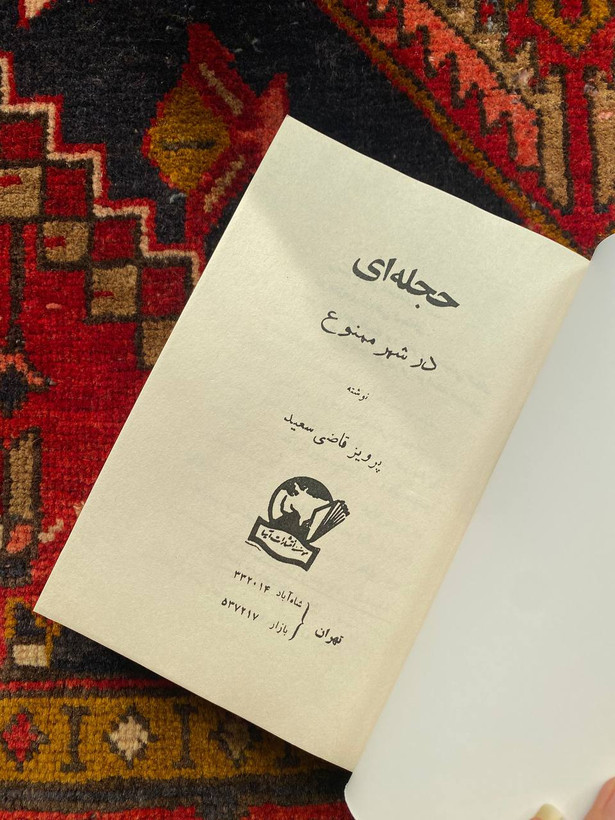 حجله‌ای
در شهر ممنوع
نوشته
پرویز قاضی سعید
انتشارات آسیا
تهران
شاه‌آباد ۳۳۲۰۱۴
بازار ۵۳۷۲۱۷